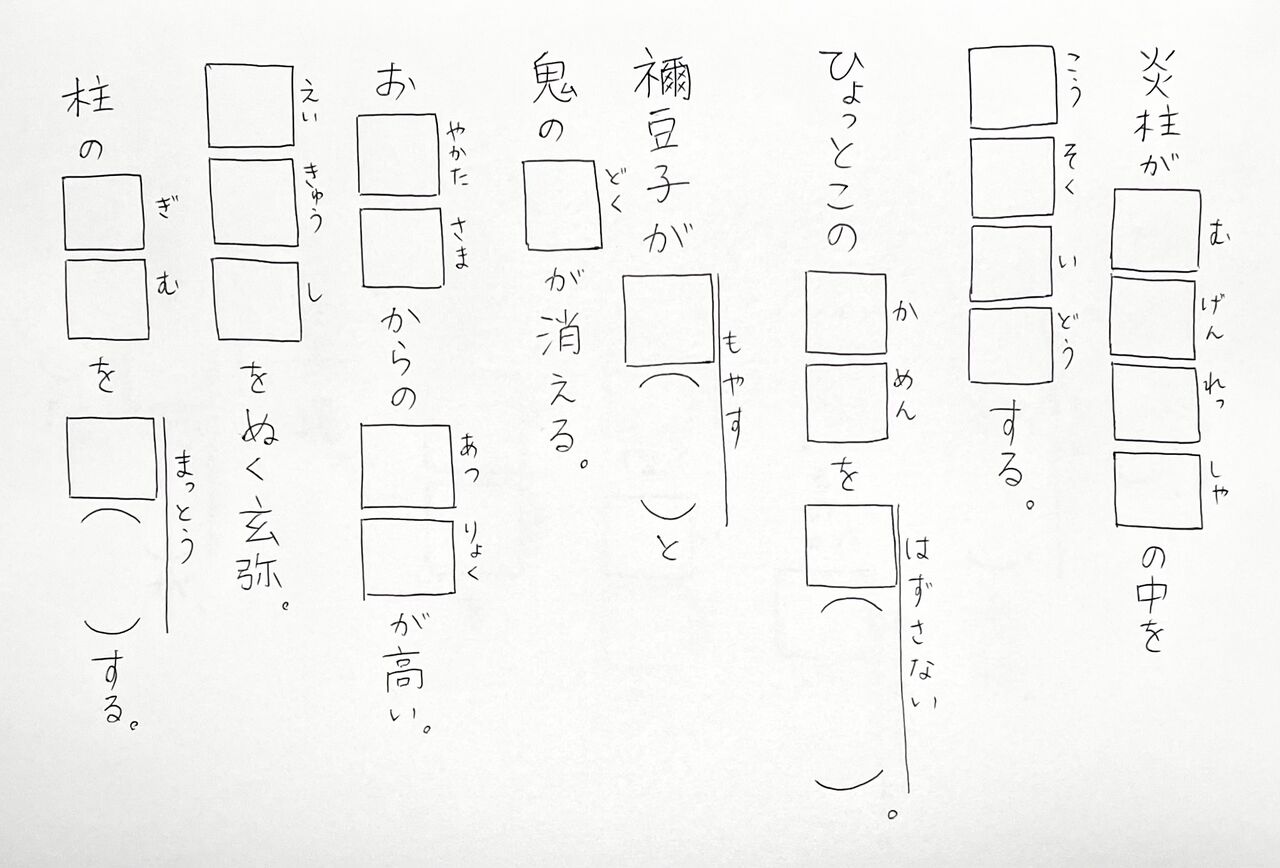 炎柱が□□□□の中を
むげんれっしゃ
□□□□する。
こうそくいどう
ひょっとこの□□を□（　）。
かめん
はずさない
禰豆子が□（　）と
もやす
鬼の□が消える。
どく
お□□からの□□が高い。
やかたさま
あつりょく
□□□をぬく玄弥。
えいきゅうし
柱の□□を□（　）する。
ぎむ
まっとう